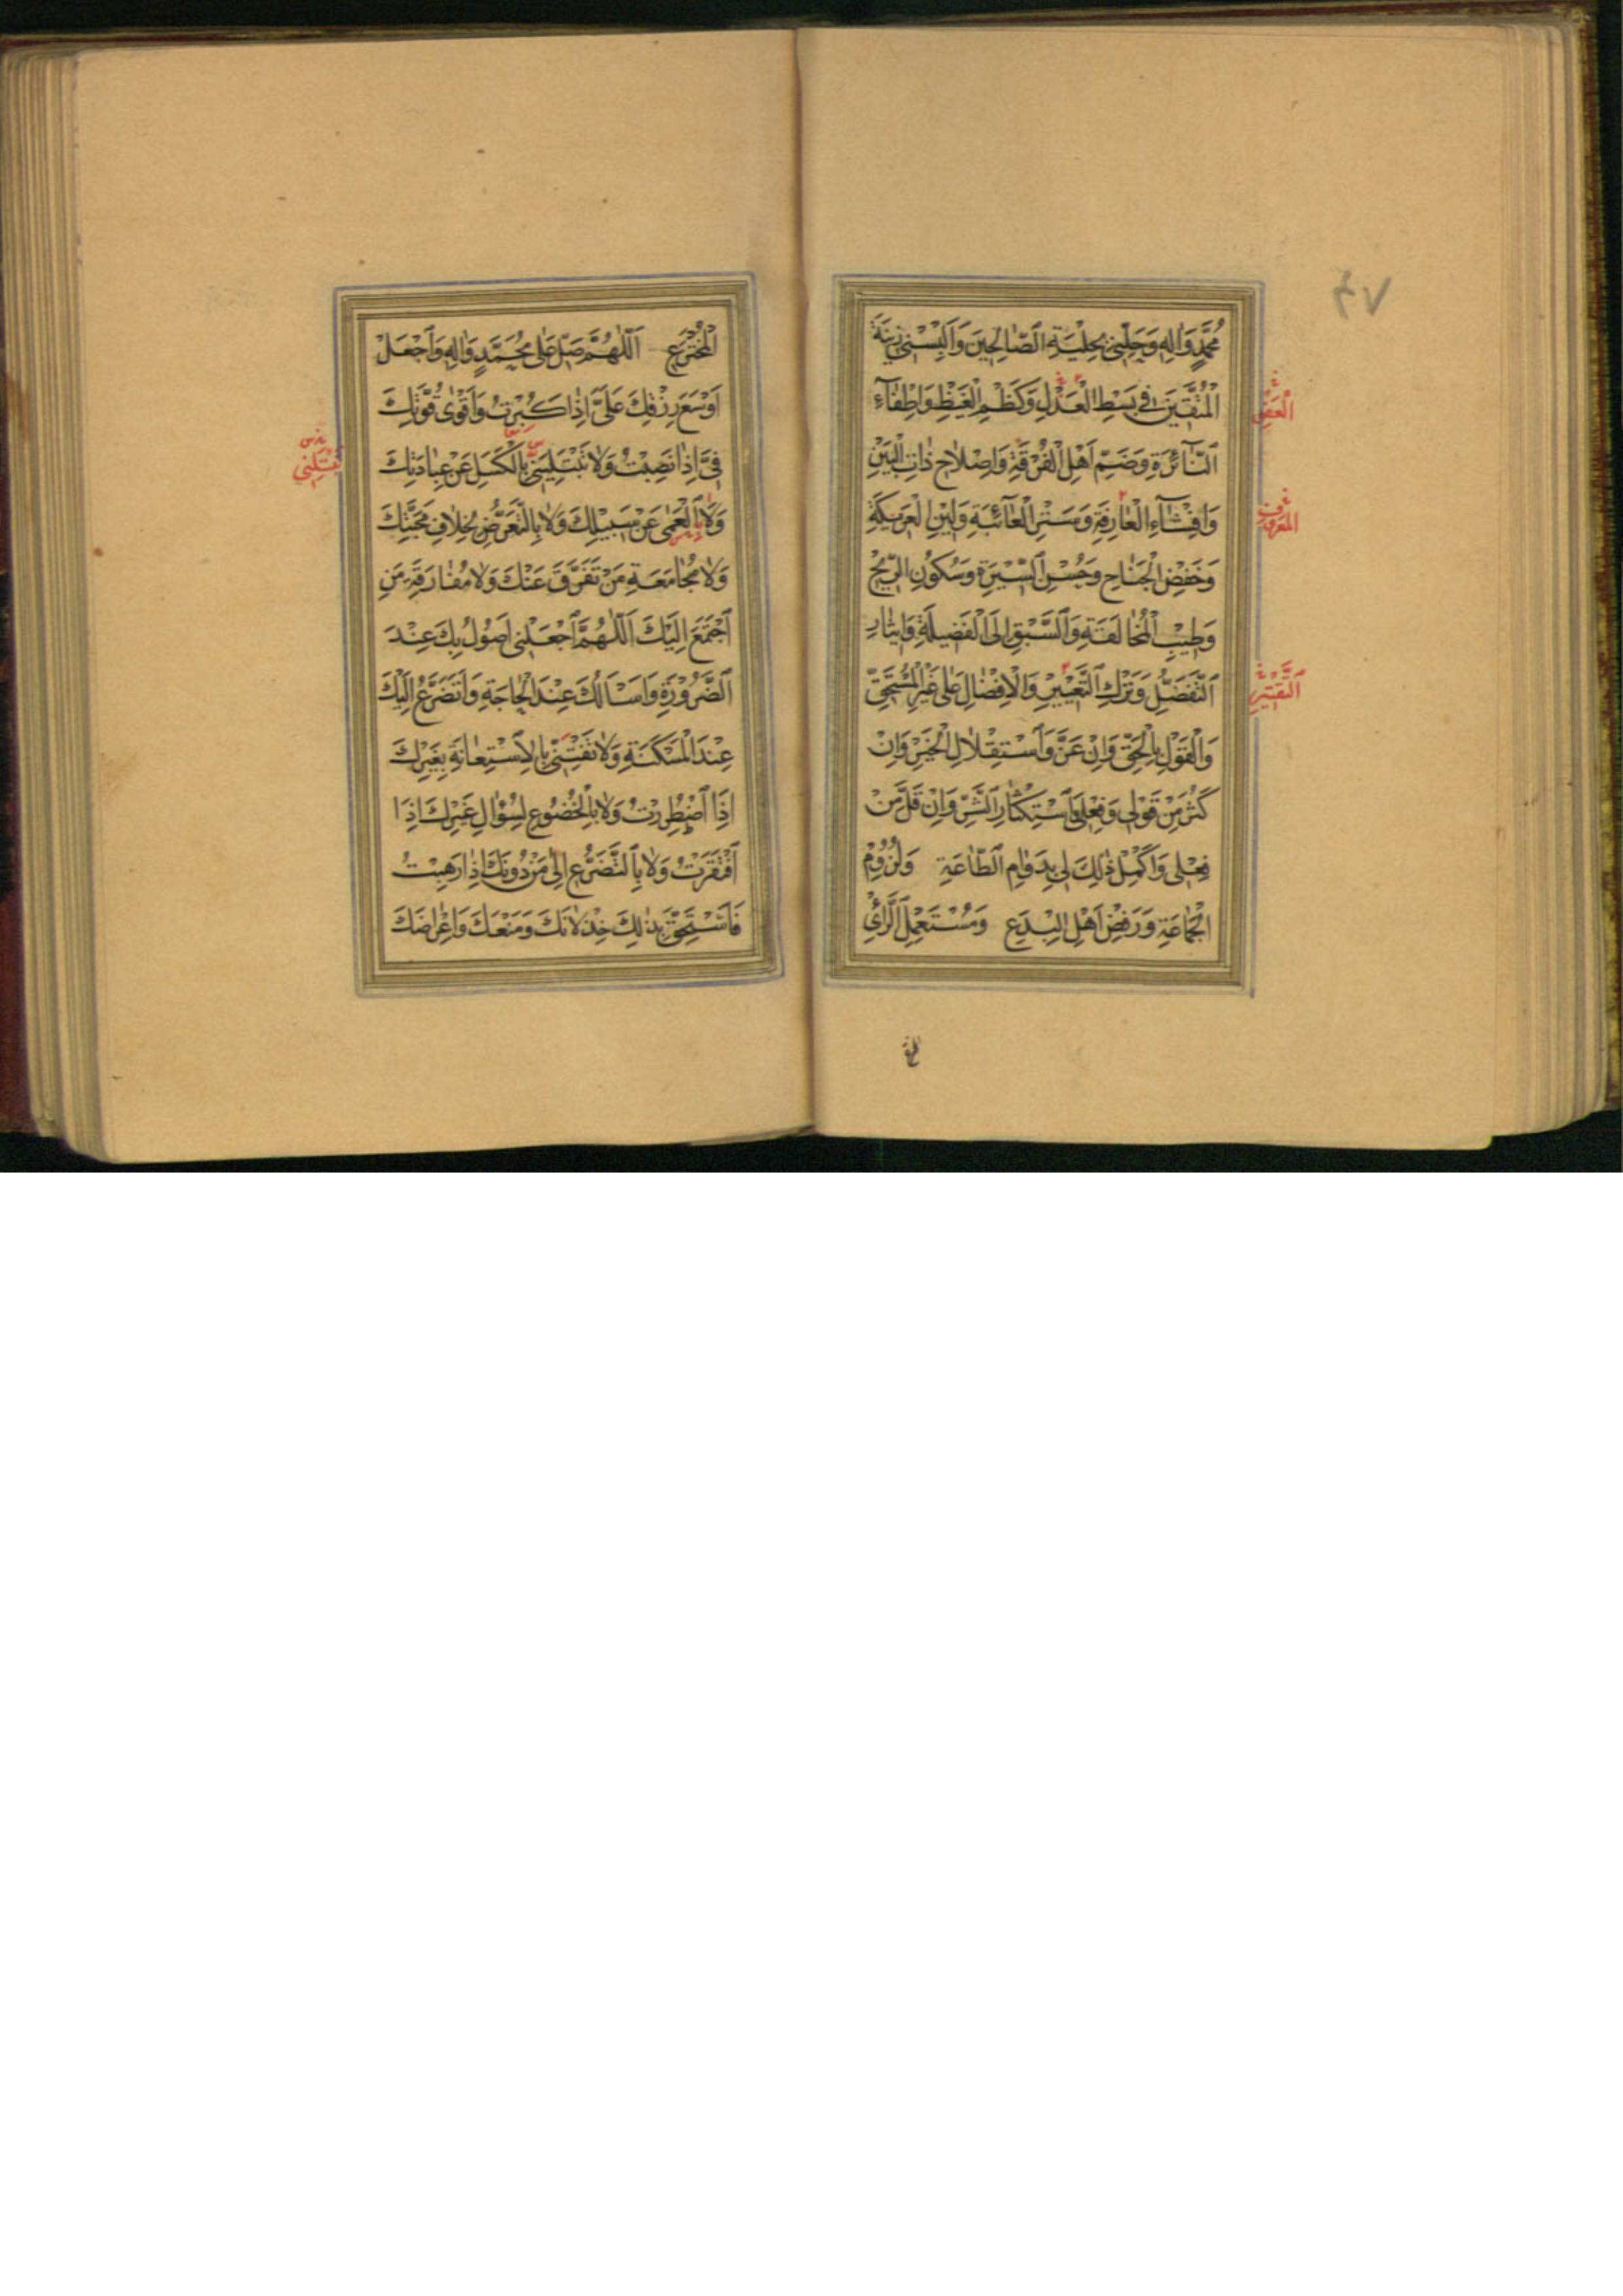 مُحَمَّدٍ وَاٰلِهِ وَحَلِّنِي بِحِلْيَةِ الصَّالِحِينَ وَاَلْبِسْنِي زِينَةَ
الْمُتَّقِينَ فِي بَسْطِ الْعَدْلِ وَكَظْمِ الْغَيْظِ وَاِطْفَاءِ
النَّائِرَةِ وَضَمِّ اَهْلِ الْفُرْقَةِ وَاِصْلَاحِ ذَاتِ الْبَيْنِ
وَاِفْشَاءِ الْعَارِفَةِ وَسَتْرِ الْعَائِبَةِ وَلِينِ الْعَرِيكَةِ
وَخَفْضِ الْجَنَاحِ وَحُسْنِ السِّيرَةِ وَسُكُونِ الرِّيحِ
وَطِيبِ الْمُخَالَقَةِ وَالسَّبْقِ اِلَى الْفَضِيلَةِ وَاِيثَارِ
التَّفَضُّلِ وَتَرْكِ التَّعْيِيرِ وَالْاِفْضَالِ عَلَى غَيْرِ الْمُسْتَحِقِّ
وَالْقَوْلِ بِالْحَقِّ وَاِنْ عَزَّ وَاسْتِقْلَالِ الْخَيْرِ وَاِنْ
كَثُرَ مِنْ قَوْلِي وَفِعْلِي وَاسْتِكْثَارِ الشَّرِّ وَاِنْ قَلَّ مِنْ
فِعْلِي وَاَكْمِلْ ذٰلِكَ لِي بِدَوَامِ الطَّاعَةِ وَلُزُومِ
الْجَمَاعَةِ وَرَفْضِ اَهْلِ الْبِدَعِ وَمُسْتَعْمِلِ الرَّأْيِ
الْمُعْرُوفِ
التَّقْتِيرِ
الْمُخْتَرَعِ اَللّٰهُمَّ صَلِّ عَلٰى مُحَمَّدٍ وَاٰلِهِ وَاجْعَلْ
اَوْسَعَ رِزْقِكَ عَلَيَّ اِذَا كَبُرْتُ وَاَقْوٰى قُوَّتِكَ
فِيَّ اِذَا نَصِبْتُ وَلَا تَبْتَلِيَنِّي بِالْكَسَلِ عَنْ عِبَادَتِكَ
وَلَا الْعَمٰى عَنْ سَبِيلِكَ وَلَا بِالتَّعَرُّضِ لِخِلَافِ مَحَبَّتِكَ
وَلَا مُجَامَعَةِ مَنْ تَفَرَّقَ عَنْكَ وَلَا مُفَارَقَةِ مَنِ
اجْتَمَعَ اِلَيْكَ اَللّٰهُمَّ اجْعَلْنِي اَصُولُ بِكَ عِنْدَ
الضَّرُورَةِ وَاَسْاَلُكَ عِنْدَ الْحَاجَةِ وَاَتَضَرَّعُ اِلَيْكَ
عِنْدَ الْمَسْكَنَةِ وَلَا تَفْتِنِّي بِالْاِسْتِعَانَةِ بِغَيْرِكَ
اِذَا اضْطُرِرْتُ وَلَا بِالْخُضُوعِ لِسُؤَالِ غَيْرِكَ اِذَا
افْتَقَرْتُ وَلَا بِالتَّضَرُّعِ اِلٰى مَنْ دُونَكَ اِذَا رَهِبْتُ
فَاَسْتَحِقَّ بِذٰلِكَ خِذْلَانَكَ وَمَنْعَكَ وَاِعْرَاضَكَ